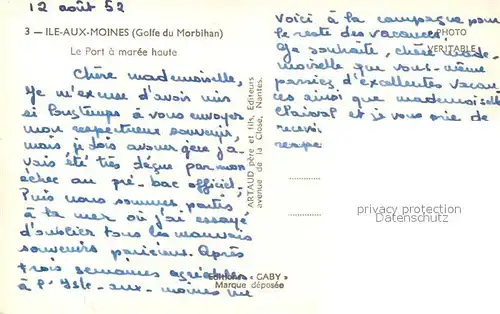 12 août 52
3 — ILE-AUX-MOINES (Golfe du Morbihan)
Le Port à marée haute
Chère mademoiselle,
Je m'excuse d'avoir mis
si longtemps à vous envoyer
mon respectueux souvenir,
mais je dois avouer que j'a-
vais été très déçue par mon
échec au pré-bac officiel.
Puis nous sommes partis
à la mer où j'ai essayé
d'oublier tous les mauvais
souvenirs parisiens. Après
trois semaines agréables
à l'Isle-aux-moines me
ARTAUD père et fils, Editeurs
avenue de la Close, Nantes.
voici à la campagne pour
le reste des vacances.
PHOTO
VÉRITABLE
Je souhaite, chère made-
moiselle que vous-même
passiez d'excellentes vacan-
ces ainsi que mademoiselle
et je vous prie de
recevoir
respe
Editions « GABY »
Marque déposée
privacy protection
Datenschutz